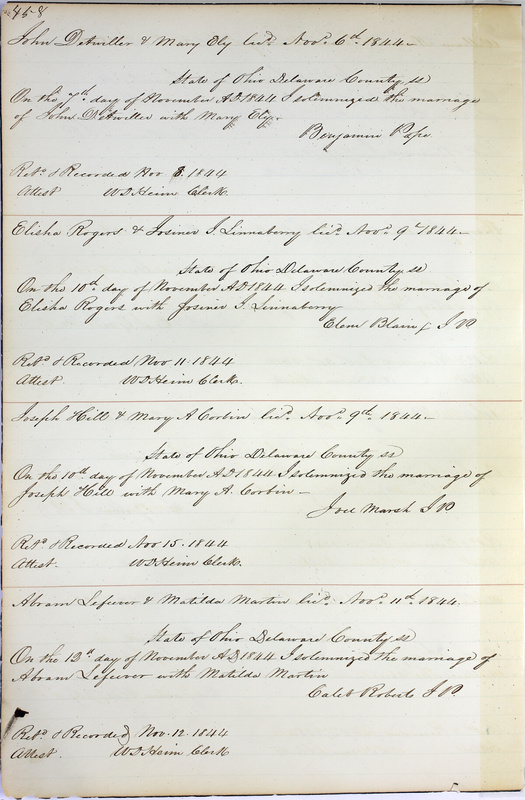 458
John Detwiller & Mary Ely licd. Novr. 6th 1844
State of Ohio Delaware County ss
On the 7th day of November AD 1844 I solemnized the marriage
of John Detwiller with Mary Ely.
Benjamin Pope
Retd. & Recorded Nov 8. 1844
Attest W D Heim Clerk.
Elisha Rogers & Josiner I. Linnaberry licd. Novr. 9th 1844
State of Ohio Delaware County ss
On the 10th day of November AD 1844 I solemnized the marriage of
Elisha Rogers with Josiner I. Linnaberry
Blain J P
Retd. & Recorded Nov 11. 1844
Attest. W D Heim Clerk.
Joseph Hill & Mary A Corbin licd. Novr. 9th. 1844
State of Ohio Delaware County ss
On the 10th. day of November AD 1844 I solemnized the marriage of
Joseph Hill with Mary A. Corbin
Joel Marsh J P
Retd. & Recorded Nov 15. 1844
Attest. W D Heim Clerk.
Abram Lefever & Matilda Martin licd. Novr. 11th. 1844
State of Ohio Delaware County ss
On the 12th day of November AD 1844 I solemnized the marriage of
Abram Lefever with Matilda Martin
Caleb Roberts J P.
Retd. & Recorded Nov. 12. 1844
Attest. W D Heim Clerk